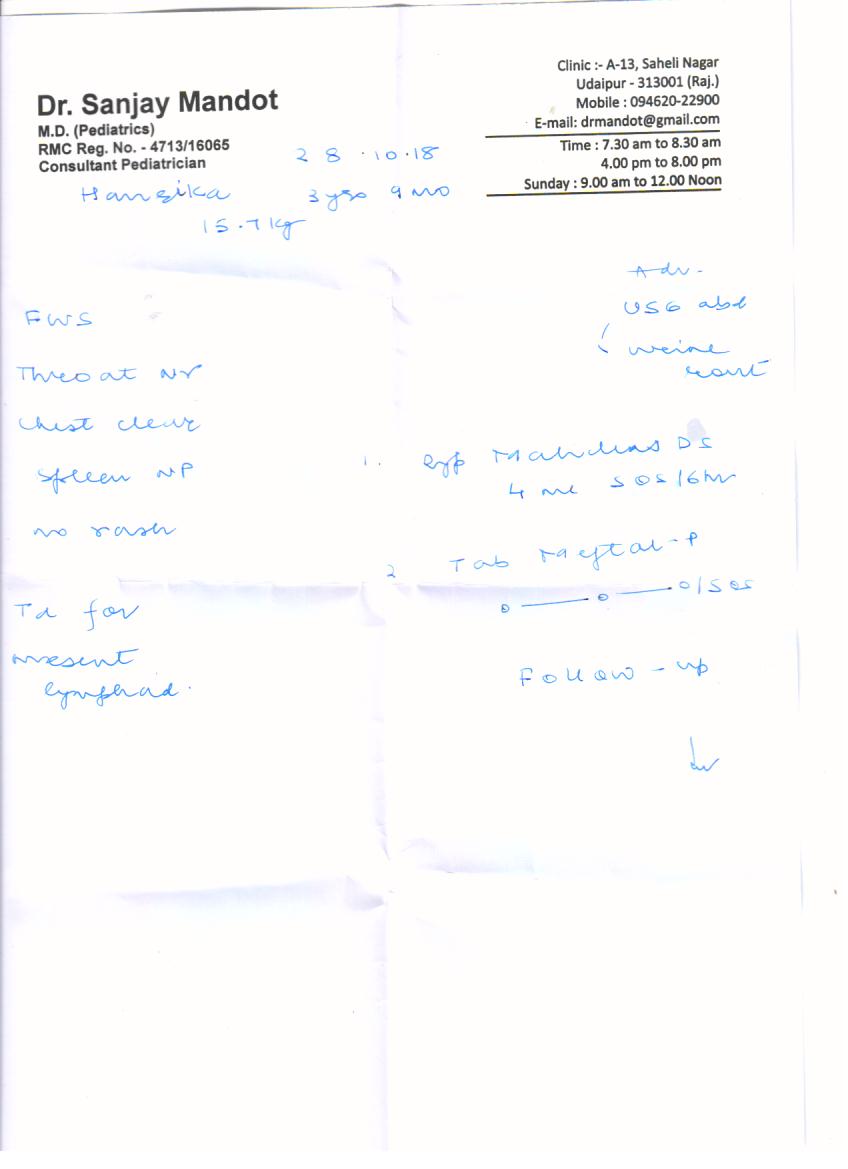 Dr. Sanjay Mandot
M.D. (Pediatrics)
RMC Reg. No. - 4713/16065
Consultant Pediatrician
Clinic :- A-13, Saheli Nagar
Udaipur - 313001 (Raj.)
Mobile : 094620-22900
E-mail: drmandot@gmail.com
Time : 7.30 am to 8.30 am
4.00 pm to 8.00 pm
Sunday : 9.00 am to 12.00 Noon
28.10.18
Hansika 3 yrs 9 mo
15.7 kg
FWS
Throat Nr
Chest clear
Spleen NP
no rash
for
mesent
lymphad.
Adv.
USG abd
1. Syp DS
4 ml SOS/6hr
2 Tab Meftal-P
/SOS
Follow-up